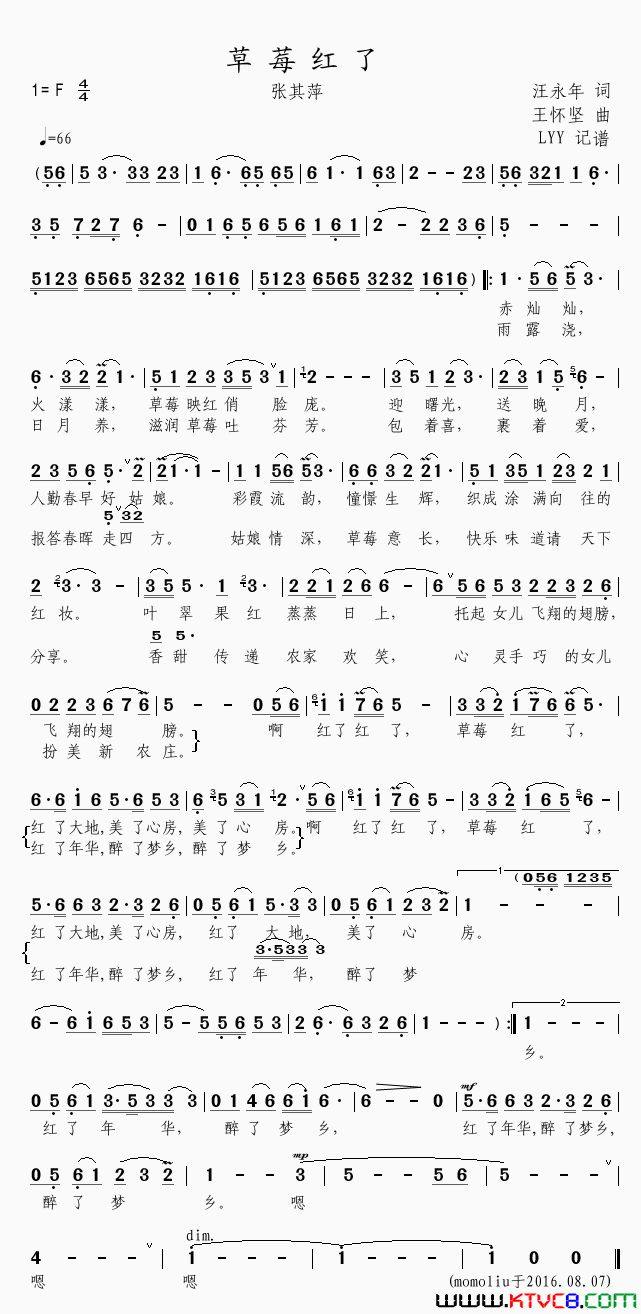 草莓红了
1= F 4/4
张其萍
汪永年 词
王怀坚 曲
♩=66
LYY 记谱
(56 | 5 3· 33 23 | 1 6· 65 65 | 6 1· 1 63 | 2 - - 23 | 56 321 1 6· |
35 727 6 - | 01 65 656 161 | 2 - 2 2 3 6 | 5 - - - |
5123 6565 3232 1616 | 5123 6565 3232 1616 ) ‖: 1· 56 5 3· |
赤 灿 灿,
雨 露 浇,
6· 32 2 1· | 51 23 35 3 1 | 2 - - - | 35 12 3· | 23 15 6 - |
火 漾 漾, 草莓 映红 俏 脸 庞。 迎 曙光, 送 晚 月,
日 月 养, 滋润 草莓 吐 芬 芳。 包 着喜, 裹 着 爱,
23 56 5· 2 | 21· 1 - | 11 56 53· | 66 32 21· | 51 35 23 21 |
人勤春早 好 姑 娘。 彩霞 流 韵, 憧憬 生 辉, 织成 涂 满向 往的
5 32
报答春晖 走四 方。 姑娘 情 深, 草莓 意 长, 快乐 味 道请 天下
2 3· 3 - | 35 5· 1 3· | 221 26 6 - | 6 56 53 22 326 |
红 妆。 叶 翠 果 红 蒸蒸 日 上, 托起 女儿 飞翔的翅膀,
5 5·
分享。 香 甜 传 递 农家 欢 笑, 心 灵手 巧 的女儿
02 23 676 | 5 - - 056 | 1 1 76 5 - | 332 176 65· |
飞 翔的翅 膀。 啊 红了 红 了, 草莓 红 了,
扮 美 新 农庄。
6·6 16 5·6 53 | 6 5 31 2· 56 | 1 1 76 5 - | 332 165 6 - |
红 了大地,美 了心房,美 了 心 房。啊 红了 红 了, 草莓 红 了,
红 了年华,醉 了梦乡,醉 了 梦 乡。
1 (056 1235
5·6 63 2·3 26 | 05 61 5·3 3 | 05 61 23 2 | 1 - - -
红 了大地,美 了心房, 红了 大 地, 美了 心 房。
3·533 3
红 了年华,醉 了梦乡, 红了 年 华, 醉了 梦
2
6 - 61 653 | 5 - 556 53 | 2 6· 63 26 | 1 - - - ) :‖ 1 - - |
乡。
mf
05 61 3·533 3 | 01 46 61 6· | 6 - - 0 | 5·6 63 2·3 26 |
红了 年 华, 醉了 梦 乡, 红 了年华,醉 了梦乡,
mp
05 61 23 2 | 1 - - 3 | 5 - - 56 | 5 - - - |
醉 了 梦 乡。 嗯
dim.
4 - - - | 1 - - - | 1 - - - | 1 0 0 ‖
嗯 嗯
(momoliu于2016.08.07)
www.KTVC8.com